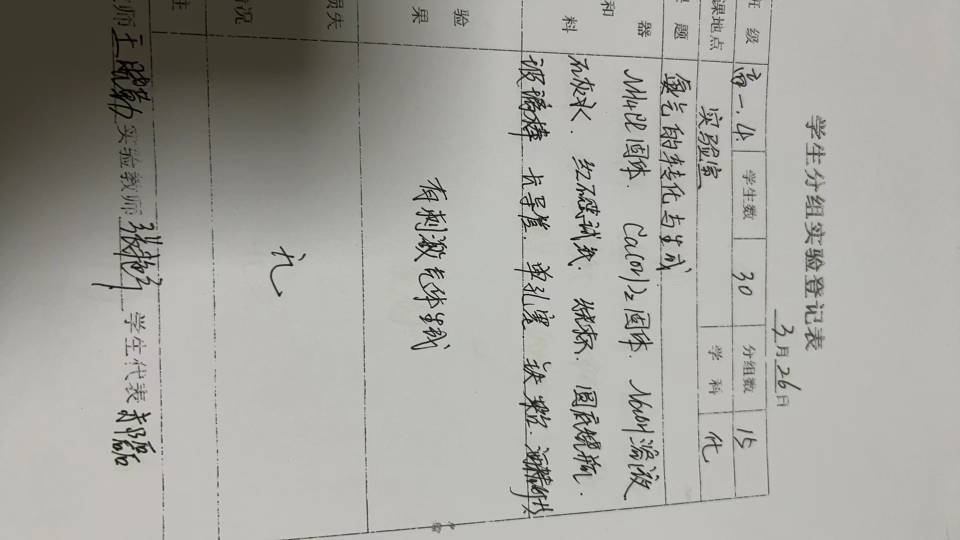 学生分组实验登记表
3月26日
班 级 高一.4 学生数 30 分组数 15
课地点 实验室 学 科 化
题 氨气的转化与生成
器 NH4Cl固体. Ca(OH)2固体. NaOH溶液
和 石灰水. 红石蕊试纸. 烧杯. 圆底烧瓶.
料 玻璃棒 导管. 单孔塞. 铁架台. 酒精灯
验
果 有刺激气体生成
损失
情况 无
注
教师 实验教师 张艳 学生代表 郭磊